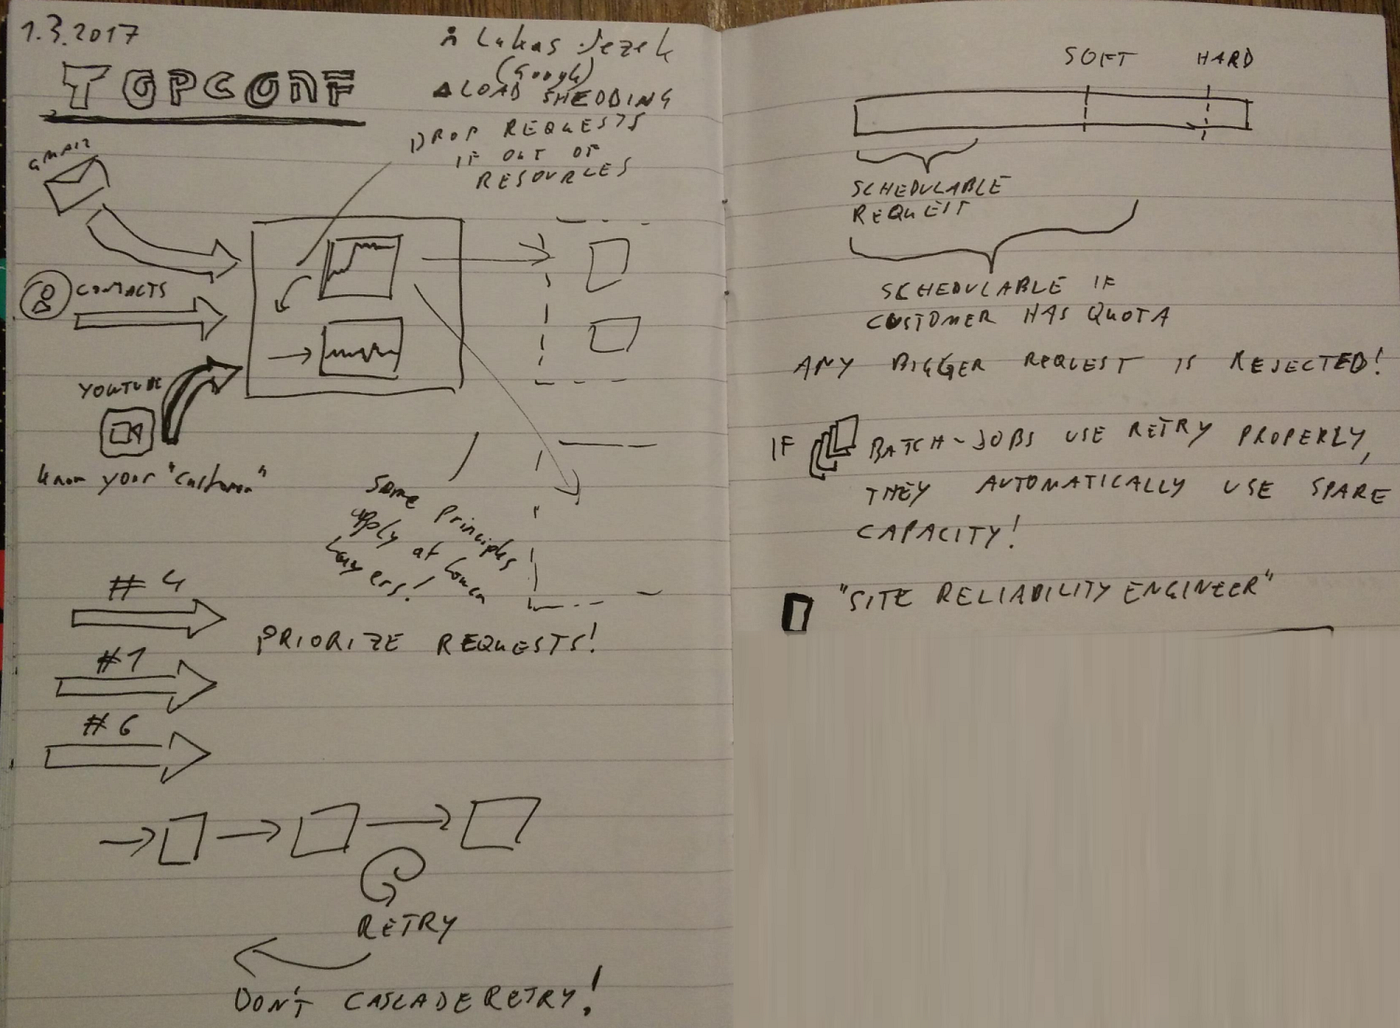 1.3.2017
TOPCONF
Lukas Jezek
(Google)
LOAD SHEDDING
DROP REQUESTS
IF OUT OF
RESOURCES
GMAIL
CONTACTS
YOUTUBE
know your "customer"
Some principles
apply at lower
layers!
#4
PRIORIZE REQUESTS!
#1
#6
RETRY
DON'T CASCADE RETRY!
SOFT HARD
SCHEDULABLE
REQUEST
SCHEDULABLE IF
CUSTOMER HAS QUOTA
ANY BIGGER REQUEST IS REJECTED!
IF BATCH-JOBS USE RETRY PROPERLY,
THEY AUTOMATICALLY USE SPARE
CAPACITY!
"SITE RELIABILITY ENGINEER"